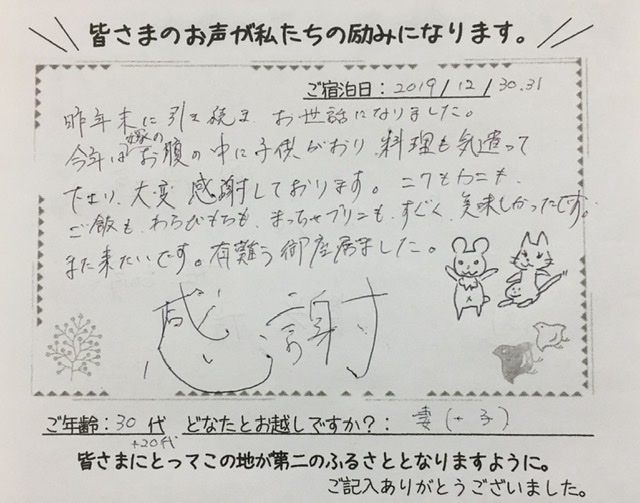 皆さまのお声が私たちの励みになります。
ご宿泊日：2019/12/30.31
昨年末に引き続き お世話になりました。
今年は嫁のお腹の中に子供がおり 料理も気遣って
下さり、大変 感謝しております。ニクもカニも、
ご飯も、わらびもちも、まっちゃプリンも、すごく、美味しかったです。
また来たいです。有難う御座居ました。
感謝
ご年齢：30代 どなたとお越しですか？：妻(+子)
+20代
皆さまにとってこの地が第二のふるさととなりますように。
ご記入ありがとうございました。